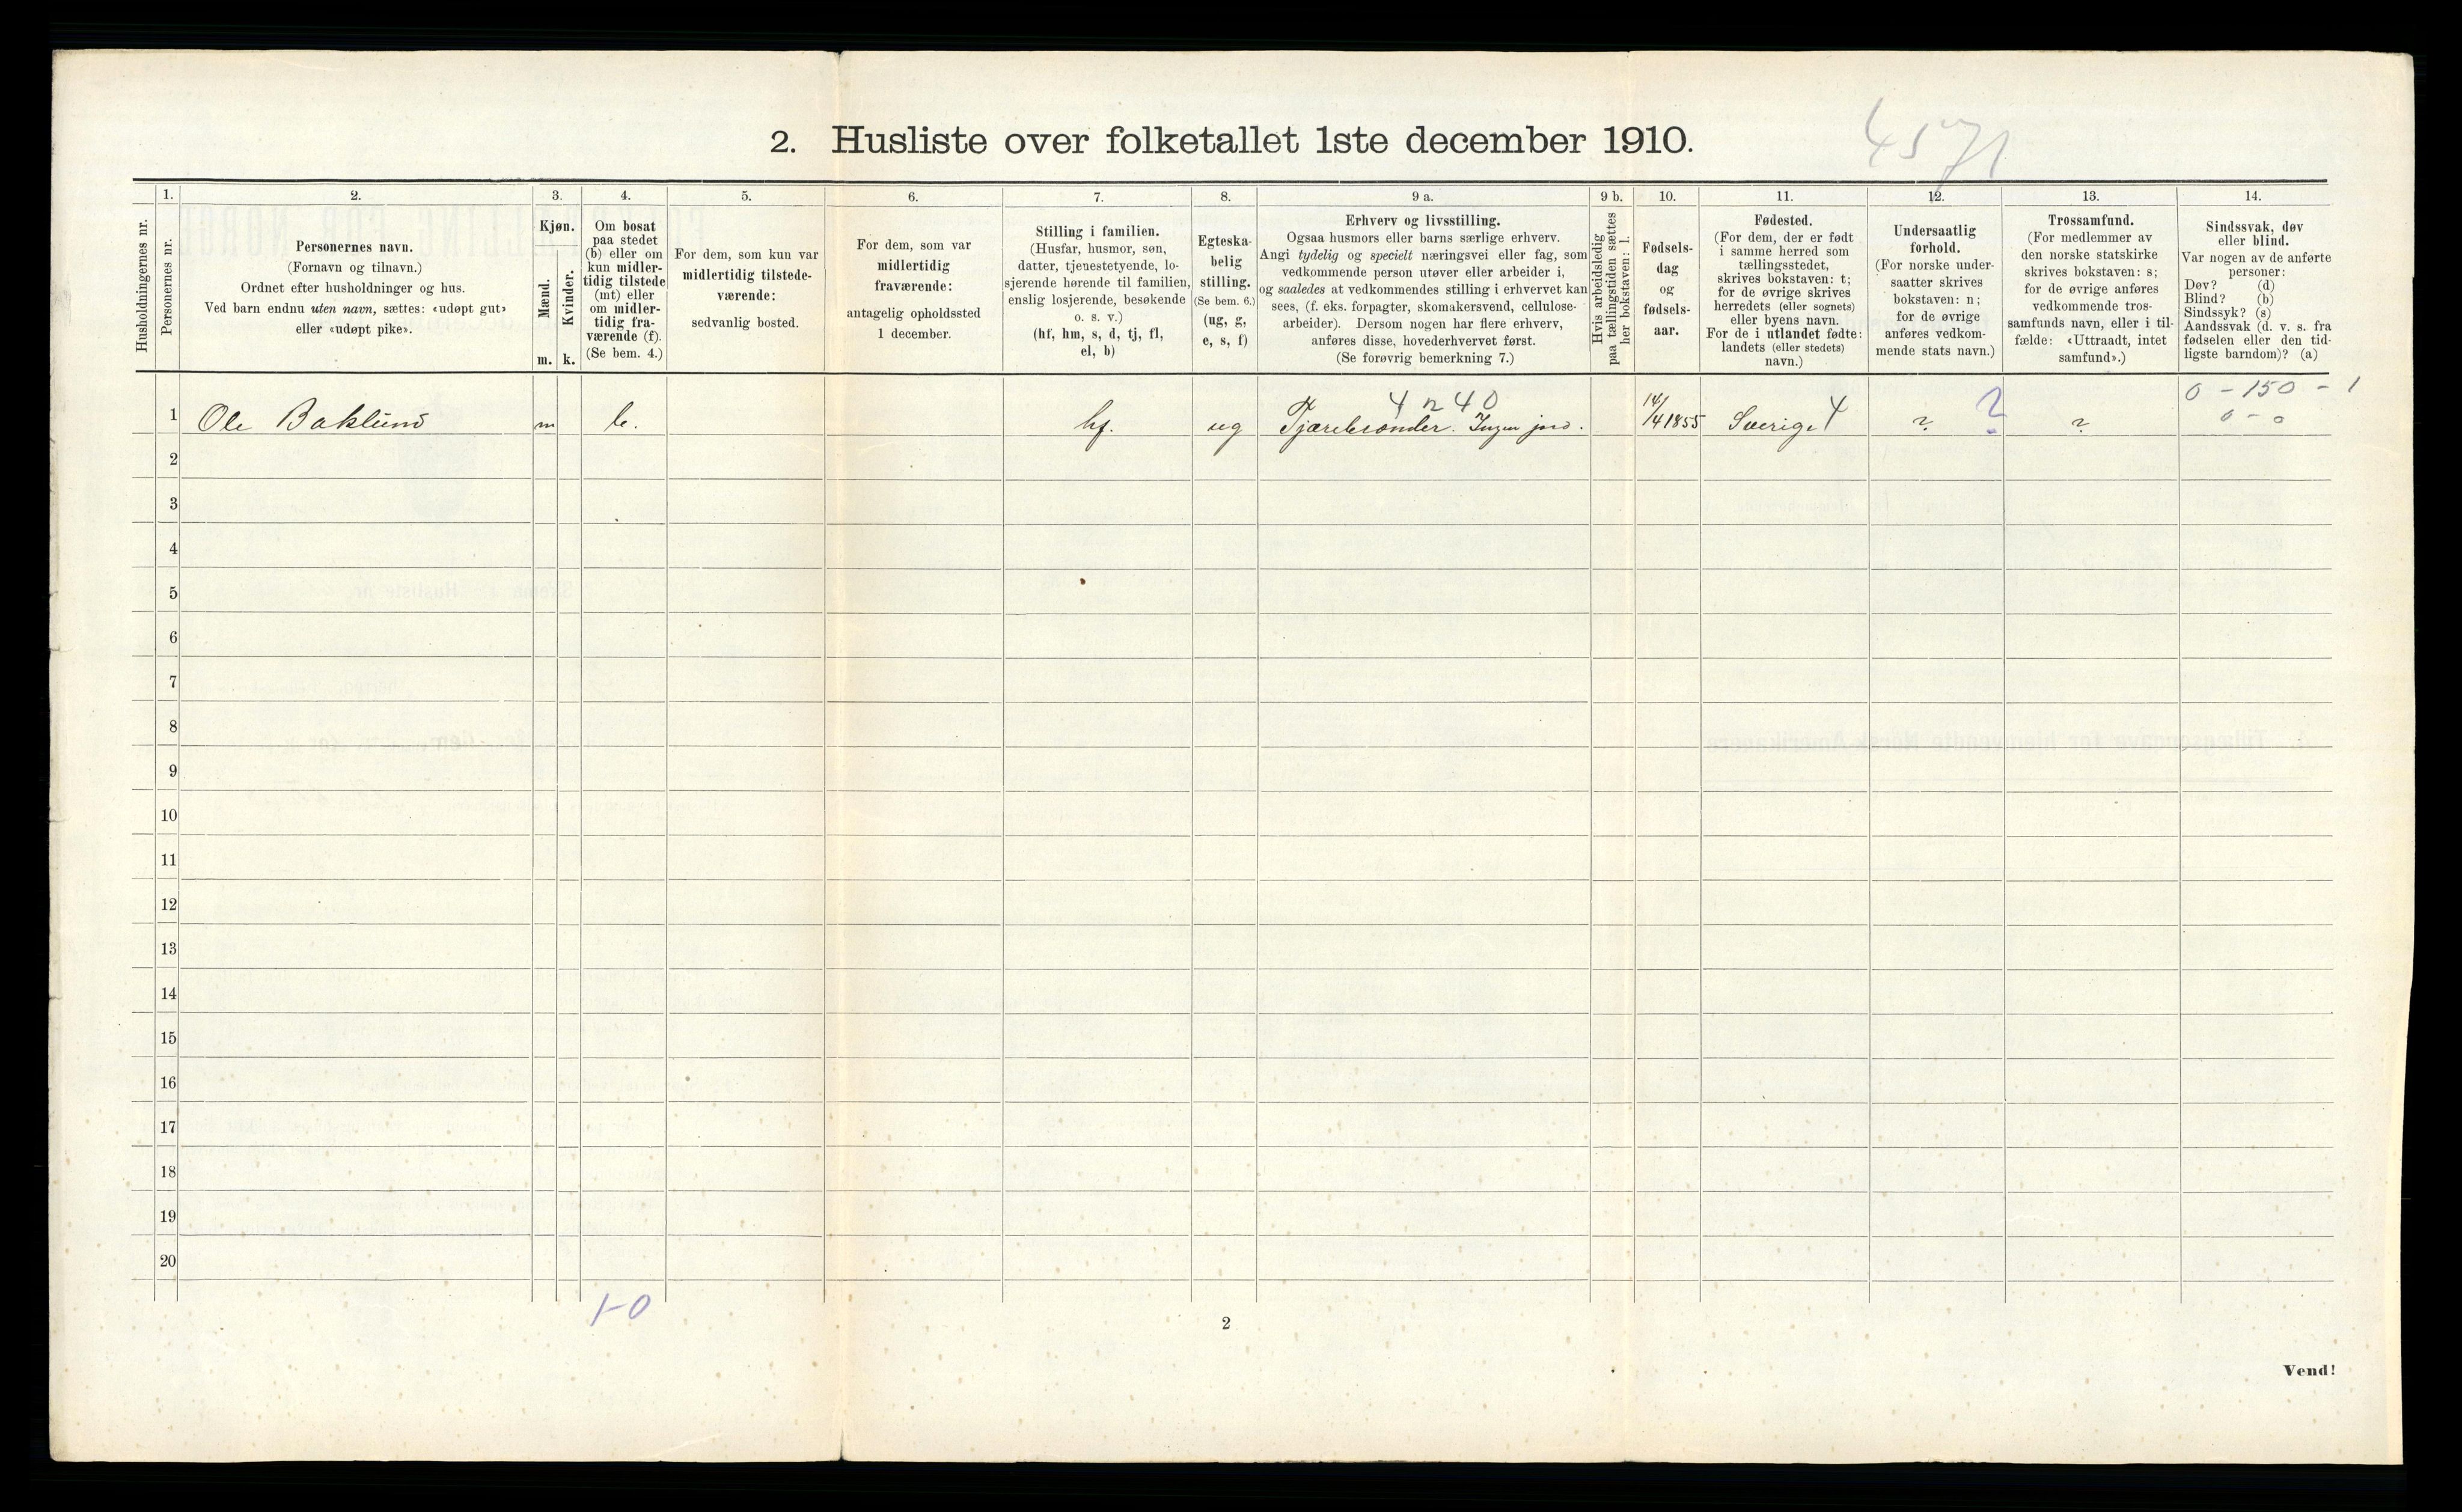 4571
2. Husliste over folketallet 1ste december 1910.
Husholdningernes nr.
1.
Personernes nr.
2.
Personernes navn.
(Fornavn og tilnavn.)
Ordnet efter husholdninger og hus.
Ved barn endnu uten navn, sættes: «udøpt gut»
eller «udøpt pike».
3.
Kjøn.
Mænd.
Kvinder.
m. k.
4.
Om bosat
paa stedet
(b) eller om
kun midler-
tidig tilstede
(mt) eller
om midler-
tidig fra-
værende (f).
(Se bem. 4.)
5.
For dem, som kun var
midlertidig tilstede-
værende:
sedvanlig bosted.
6.
For dem, som var
midlertidig
fraværende:
antagelig opholdssted
1 december.
7.
Stilling i familien.
(Husfar, husmor, søn,
datter, tjenestetyende, lo-
sjerende hørende til familien,
enslig losjerende, besøkende
o. s. v.)
(hf, hm, s, d, tj, fl,
el, b)
8.
Egteska-
belig
stilling.
(Se bem. 6.)
(ug, g,
e, s, f)
9 a.
Erhverv og livsstilling.
Ogsaa husmors eller barns særlige erhverv.
Angi tydelig og specielt næringsvei eller fag, som
vedkommende person utøver eller arbeider i,
og saaledes at vedkommendes stilling i erhvervet kan
sees, (f. eks. forpagter, skomakersvend, cellulose-
arbeider). Dersom nogen har flere erhverv,
anføres disse, hovederhvervet først.
(Se forøvrig bemerkning 7.)
9 b.
Hvis arbeidsledig
paa tællingstiden sættes
her bokstaven: l.
10.
Fødsels-
dag
og
fødsels-
aar.
11.
Fødested.
(For dem, der er født
i samme herred som
tællingsstedet,
skrives bokstaven: t;
for de øvrige skrives
herredets (eller sognets)
eller byens navn.
For de i utlandet fødte:
landets (eller stedets)
navn.)
12.
Undersaatlig
forhold.
(For norske under-
saatter skrives
bokstaven: n;
for de øvrige
anføres vedkom-
mende stats navn.)
13.
Trossamfund.
(For medlemmer av
den norske statskirke
skrives bokstaven: s;
for de øvrige anføres
vedkommende tros-
samfunds navn, eller i til-
fælde: «Uttraadt, intet
samfund».)
14.
Sindssvak, døv
eller blind.
Var nogen av de anførte
personer:
Døv? (d)
Blind? (b)
Sindssyk? (s)
Aandssvak (d. v. s. fra
fødselen eller den tid-
ligste barndom)? (a)
4 n 40
0 - 150 - 1
1 Ole Baklund m b. hf. ug Tjærebrænder. Ingen jord. 14/4 1855 Sverige 4 ? ? ? 0 - 0
2
3
4
5
6
7
8
9
10
11
12
13
14
15
16
17
18
19
20
1-0
2
Vend!